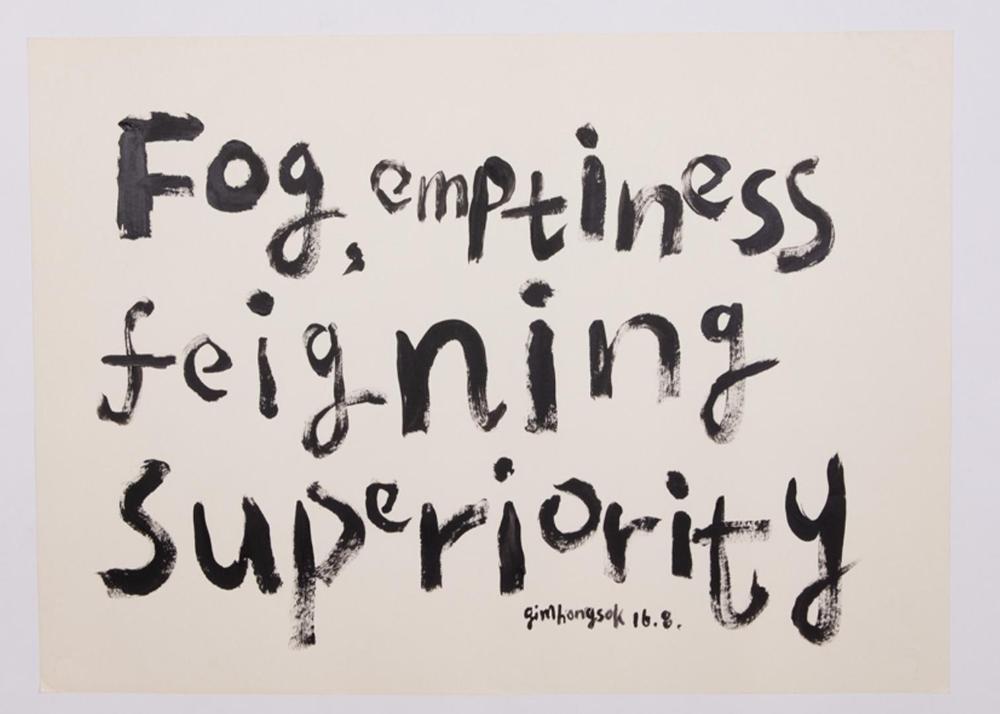 Fog, emptiness
feigning
Superiority
gimhongsok 16.8.